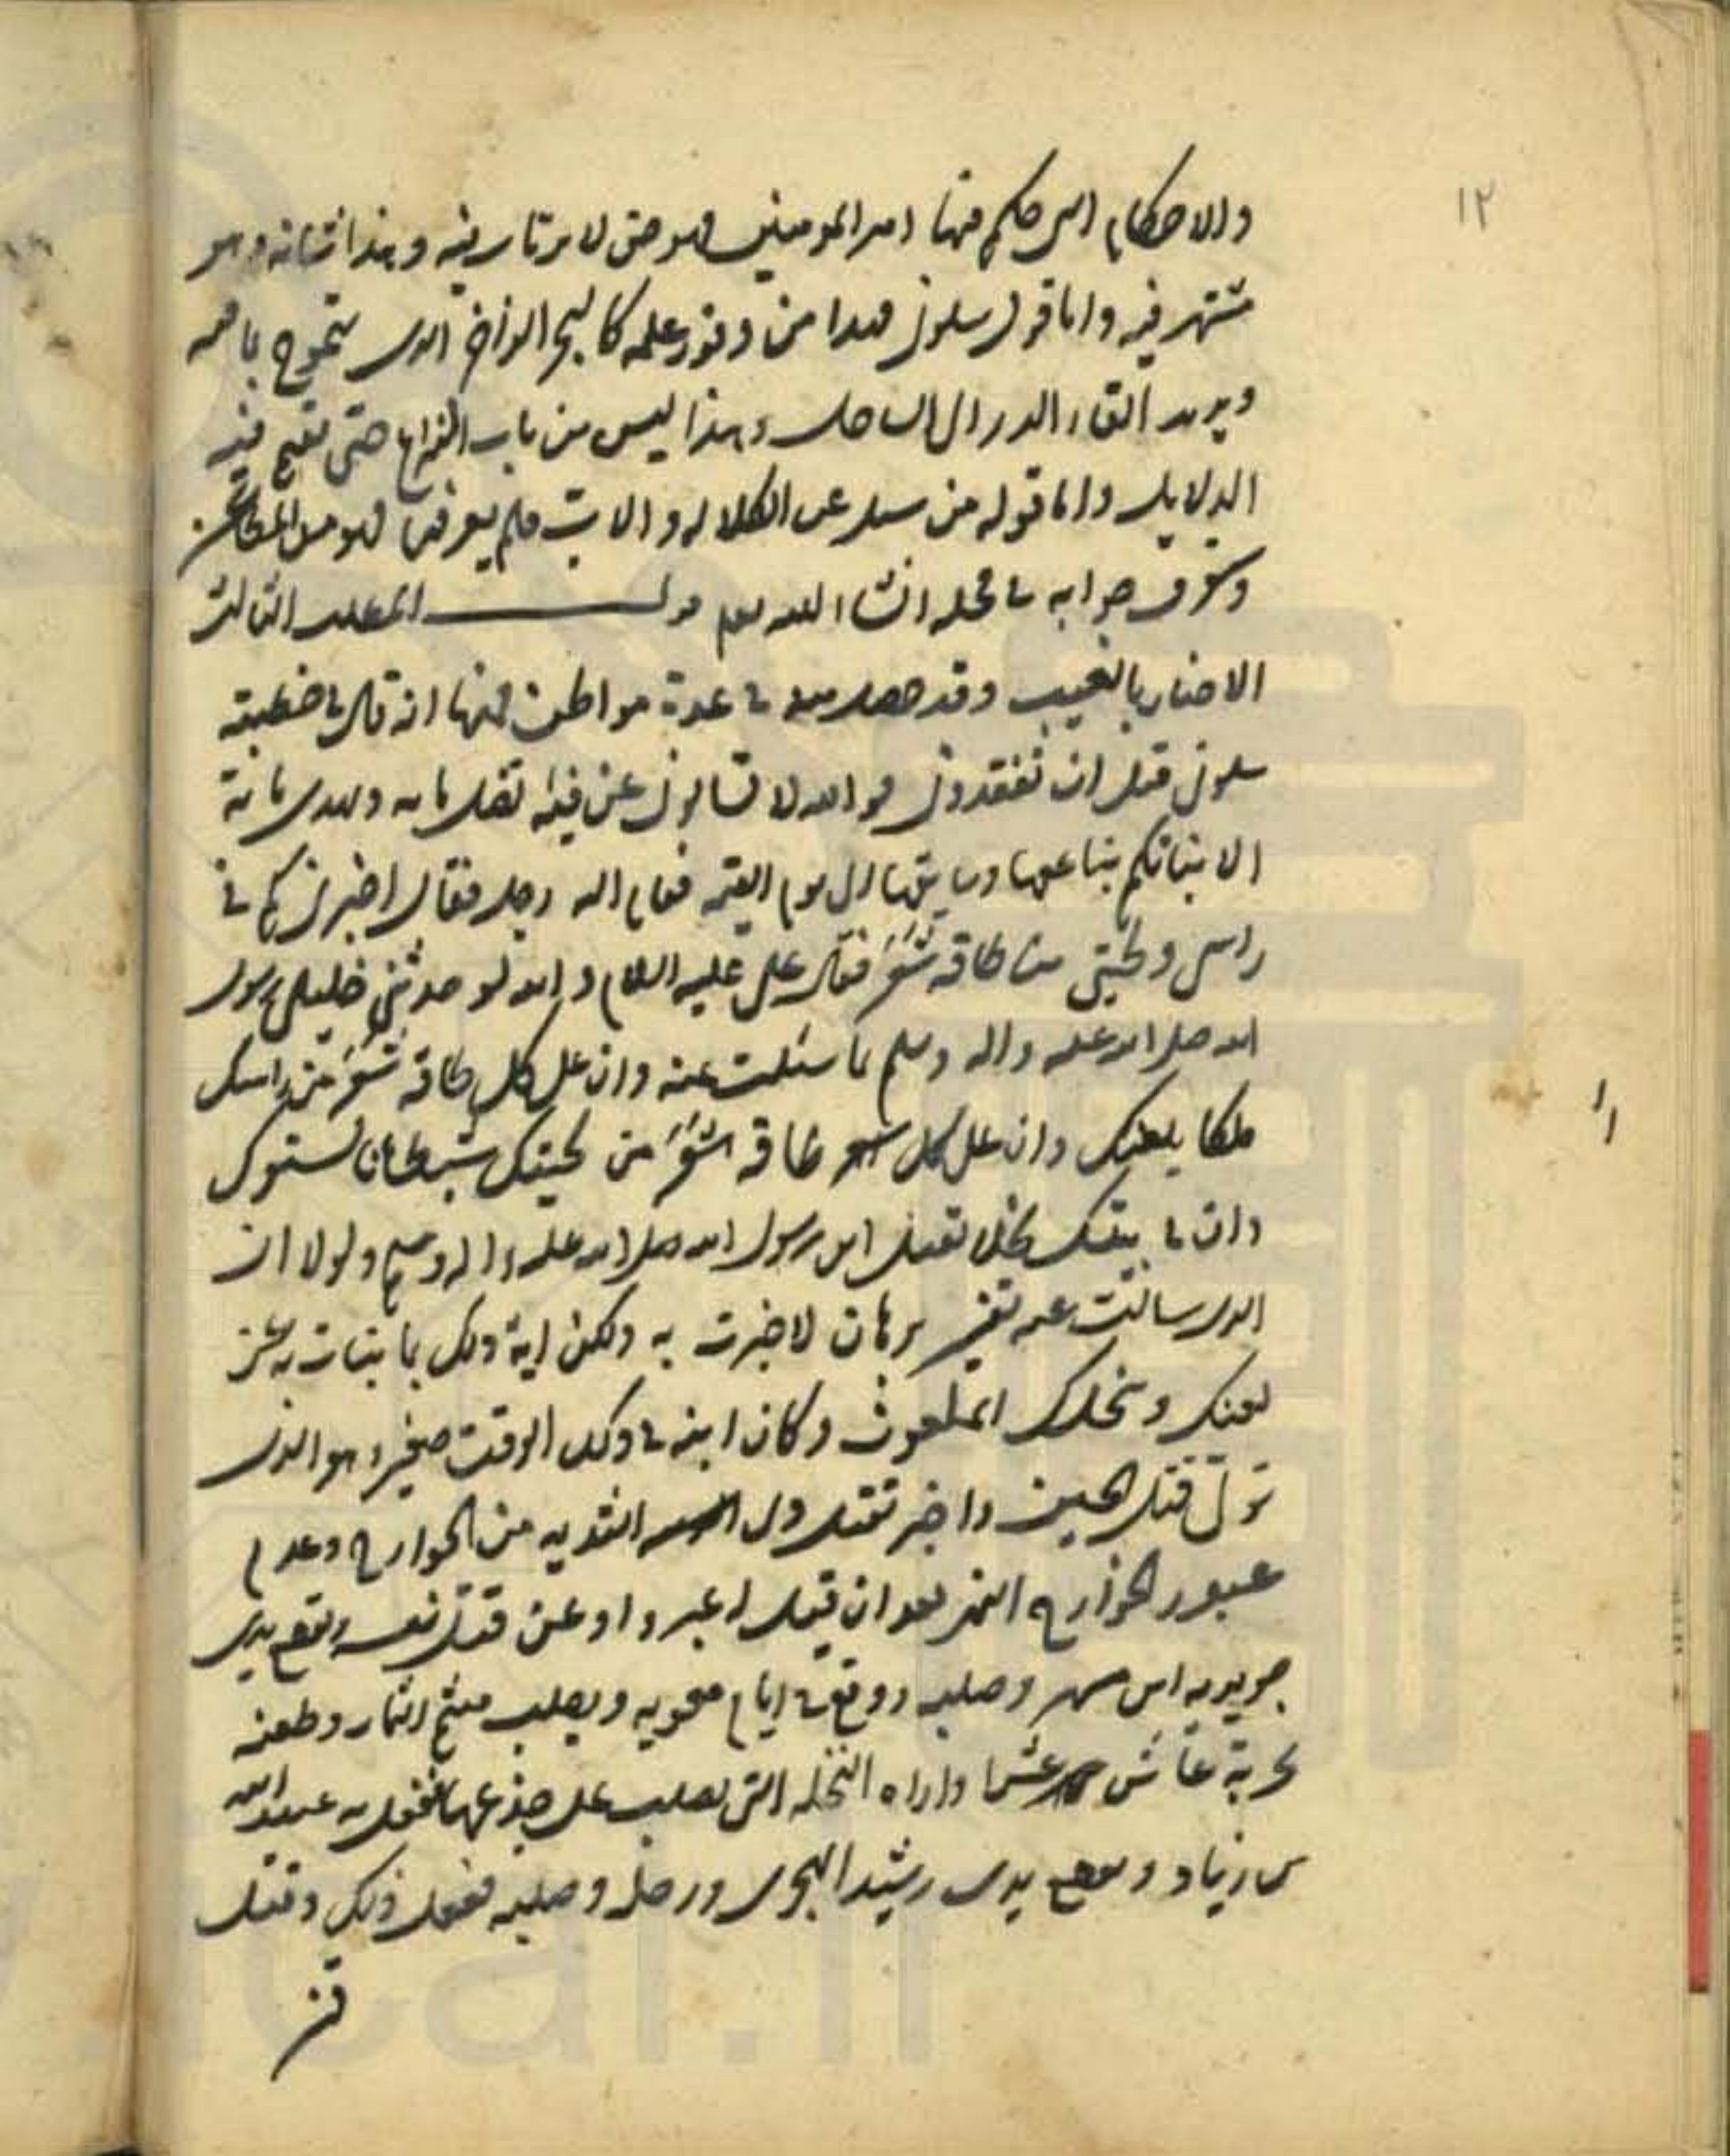 ١٢
والاحكام التي حكم فيها امير المومنين فهو حق لا يرتاب فيه وهذا شانه وهو
مشتهر فيه واما قول سلوني فهذا من وفور علمه كالبحر الزاخر الذي يتموج بامه
ويريد القاء الدر الى الساحل وهذا ليس من باب النزاع حتى تقيم فيه
الدلايل واما قوله من سئل عن الكلاله والاب فلم يعرفها فهو من المطاعن
وستعرف جوابه في محله انشا الله تعالى قوله المطلب الثالث
الاخبار بالغيب وقد حصل منه في عدة مواطن فمنها انه قال في خطبته
سلوني قبل ان تفقدوني فوالله لا تسالوني عن فيئة تضل مايه وتهدي ماية
الا نباتكم بناعقها وسايقها الى يوم القيمه فقام اليه رجل فقال اخبرني كم في
راسي ولحيتي من طاقه شعر فقال علي عليه السلام والله لقد حدثني خليلي رسول
الله صلى الله عليه واله وسلم بما سئلت عنه وان على كل طاقه شعر من راسك
ملكا يلعنك وان على كل طاقه شعر من لحيتك شيطانا يستفزك
وان في بيتك سخلا تقتل ابن رسول الله صلى الله عليه واله وسلم ولولا ان
الذي سالت عنه يعسر برهانه لاخبرت به ولكن اية ذلك ما نبات به عن
لعنك وسخلك الملعون وكان ابنه في ذلك الوقت صغير وهو الذي
تولى قتل الحسين واخبر بقتل ذي الثديه من الخوارج وعدم
عبور الخوارج النهر بعد ان قيل له عبروا وعن قتل نفسه وبقطع يدي
جويريه ابن مسهر وصلبه فوقع في ايام معويه وبصلب ميثم التمار وطعنه
بحربة عاشر عشرا واراه النخله التي يصلب على جذعها ففعل به عبيد الله
بن زياد وبقطع يدي رشيد الهجري ورجله وصلبه ففعل ذلك وقتل
قنبر
١١